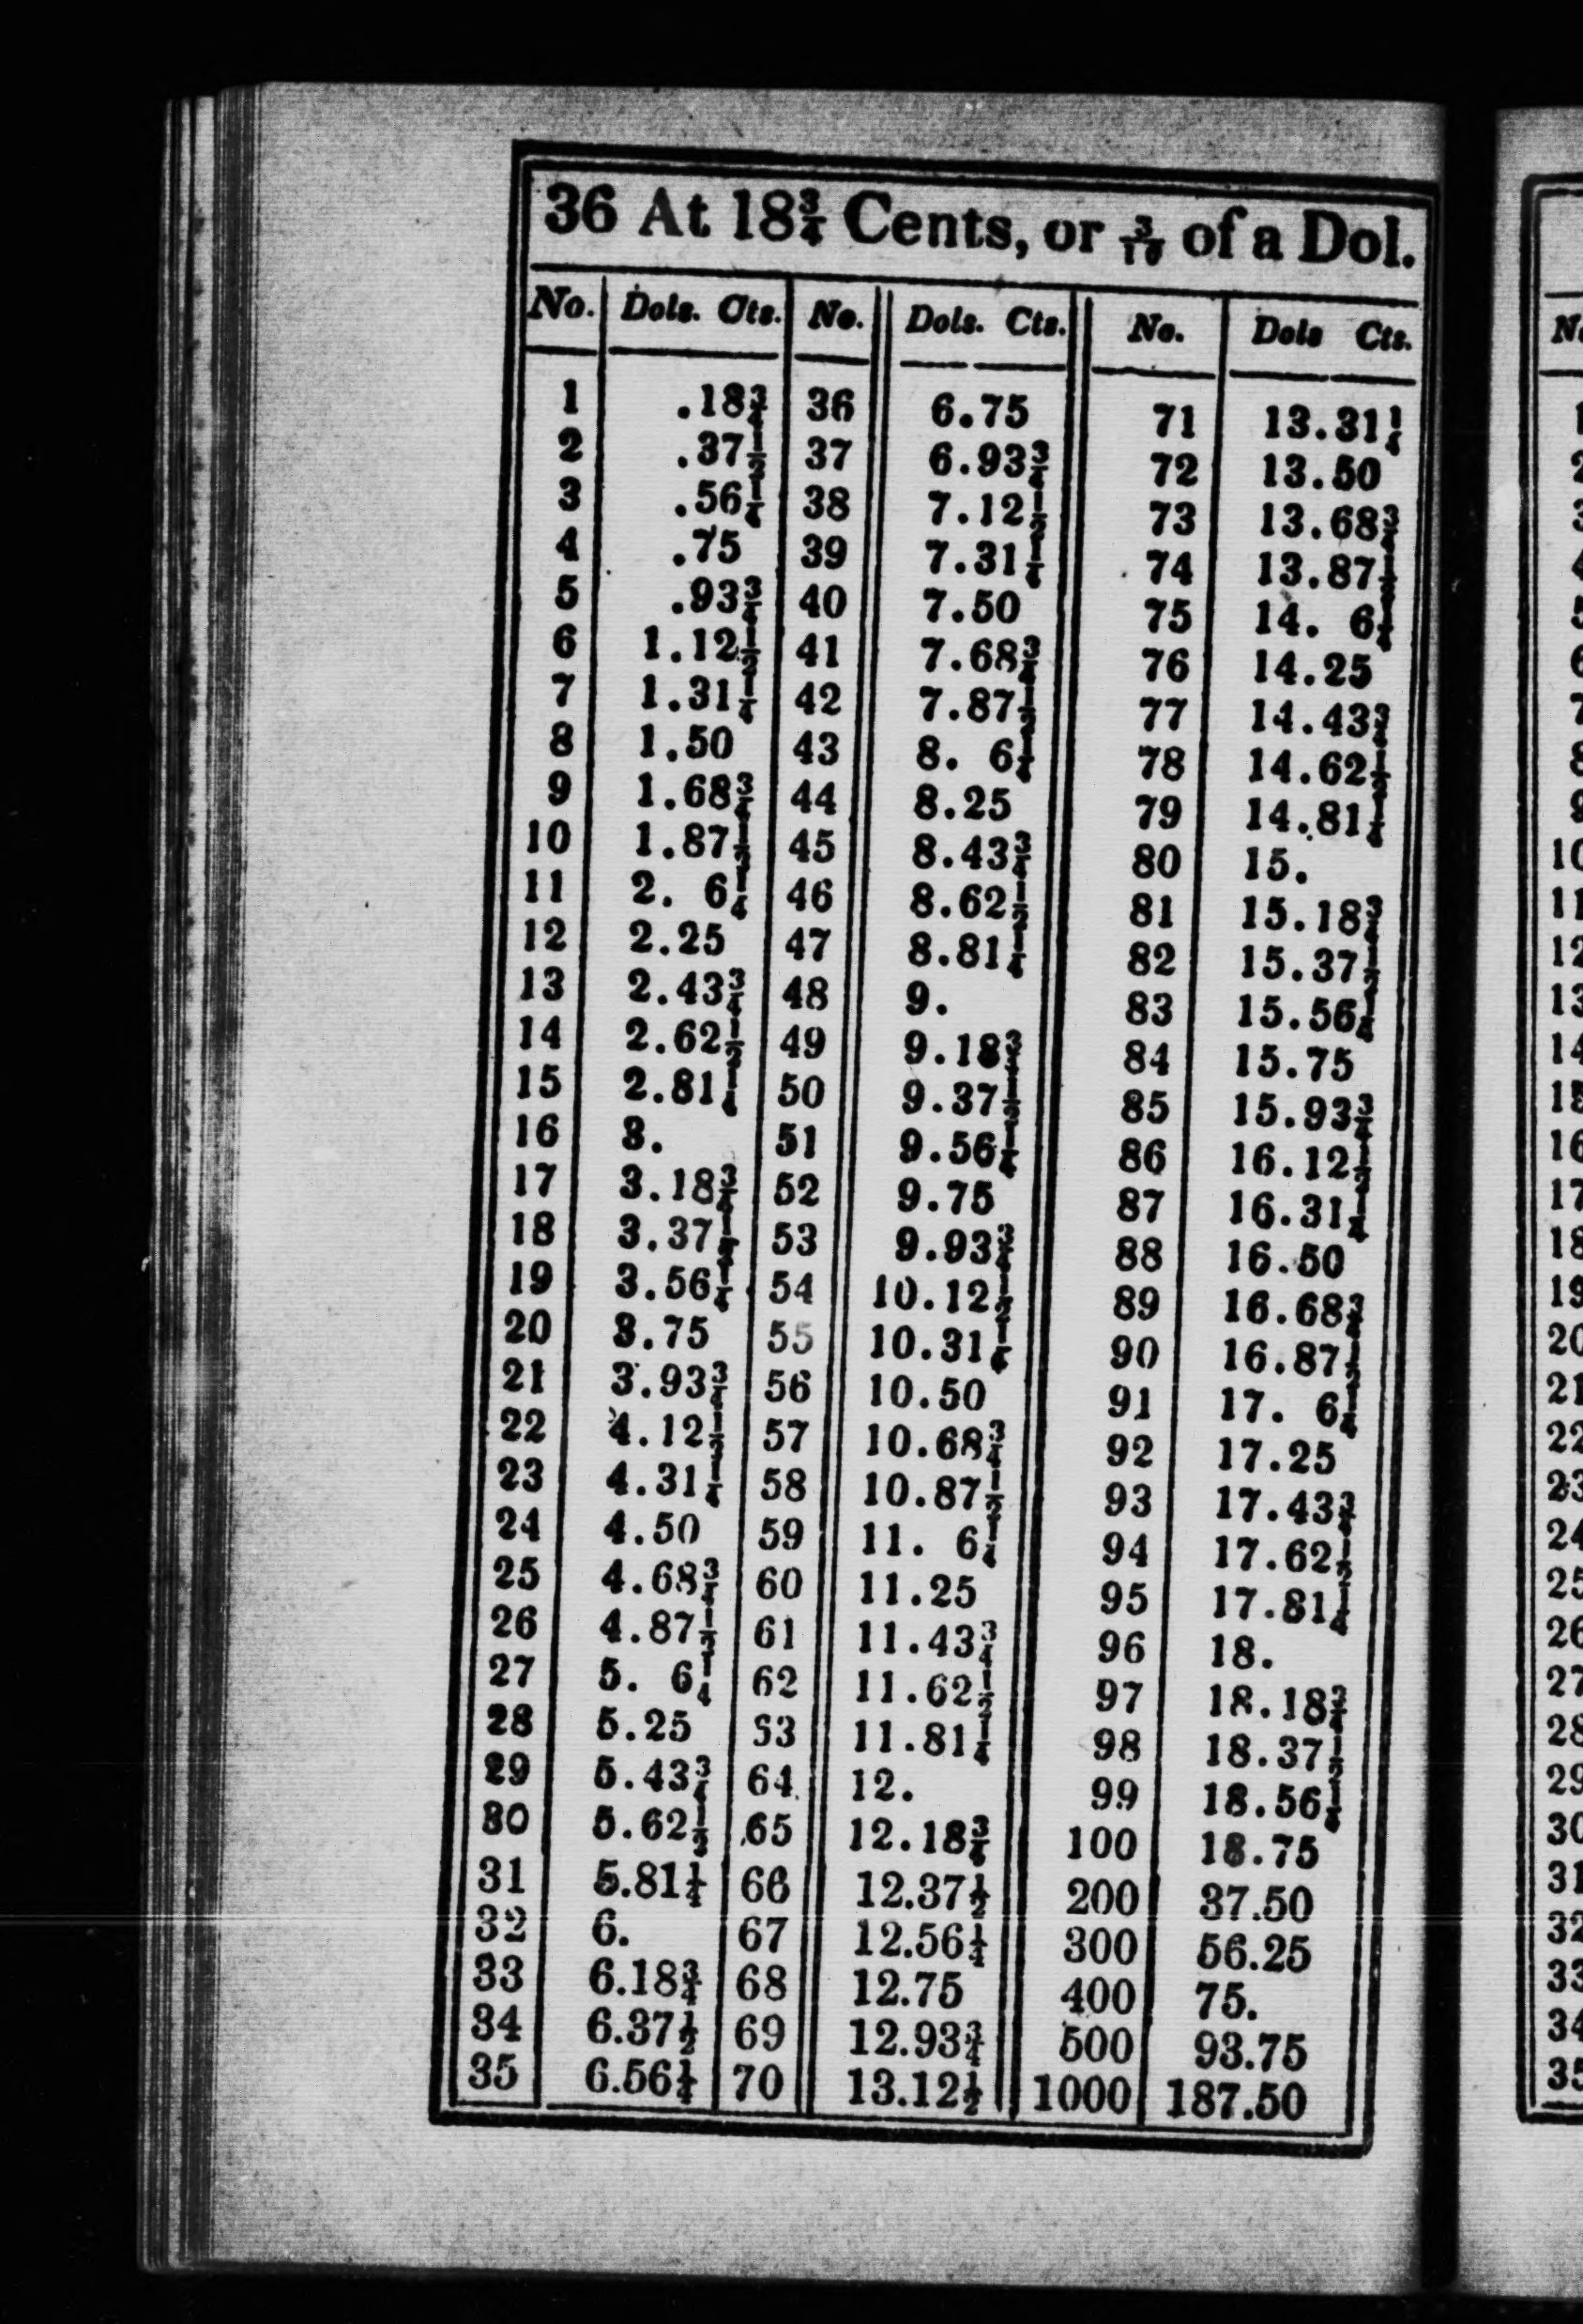 36 At 18¾ Cents, or 3/16 of a Dol.
No. Dols. Cts. No. Dols. Cts. No. Dols Cts.
1 .18¾ 36 6.75 71 13.31¼
2 .37½ 37 6.93¾ 72 13.50
3 .56¼ 38 7.12½ 73 13.68¾
4 .75 39 7.31¼ 74 13.87½
5 .93¾ 40 7.50 75 14. 6¼
6 1.12½ 41 7.68¾ 76 14.25
7 1.31¼ 42 7.87½ 77 14.43¾
8 1.50 43 8. 6¼ 78 14.62½
9 1.68¾ 44 8.25 79 14.81¼
10 1.87½ 45 8.43¾ 80 15.
11 2. 6¼ 46 8.62½ 81 15.18¾
12 2.25 47 8.81¼ 82 15.37½
13 2.43¾ 48 9. 83 15.56¼
14 2.62½ 49 9.18¾ 84 15.75
15 2.81¼ 50 9.37½ 85 15.93¾
16 3. 51 9.56¼ 86 16.12½
17 3.18¾ 52 9.75 87 16.31¼
18 3.37½ 53 9.93¾ 88 16.50
19 3.56¼ 54 10.12½ 89 16.68¾
20 3.75 55 10.31¼ 90 16.87½
21 3.93¾ 56 10.50 91 17. 6¼
22 4.12½ 57 10.68¾ 92 17.25
23 4.31¼ 58 10.87½ 93 17.43¾
24 4.50 59 11. 6¼ 94 17.62½
25 4.68¾ 60 11.25 95 17.81¼
26 4.87½ 61 11.43¾ 96 18.
27 5. 6¼ 62 11.62½ 97 18.18¾
28 5.25 63 11.81¼ 98 18.37½
29 5.43¾ 64 12. 99 18.56¼
30 5.62½ 65 12.18¾ 100 18.75
31 5.81¼ 66 12.37½ 200 37.50
32 6. 67 12.56¼ 300 56.25
33 6.18¾ 68 12.75 400 75.
34 6.37½ 69 12.93¾ 500 93.75
35 6.56¼ 70 13.12½ 1000 187.50